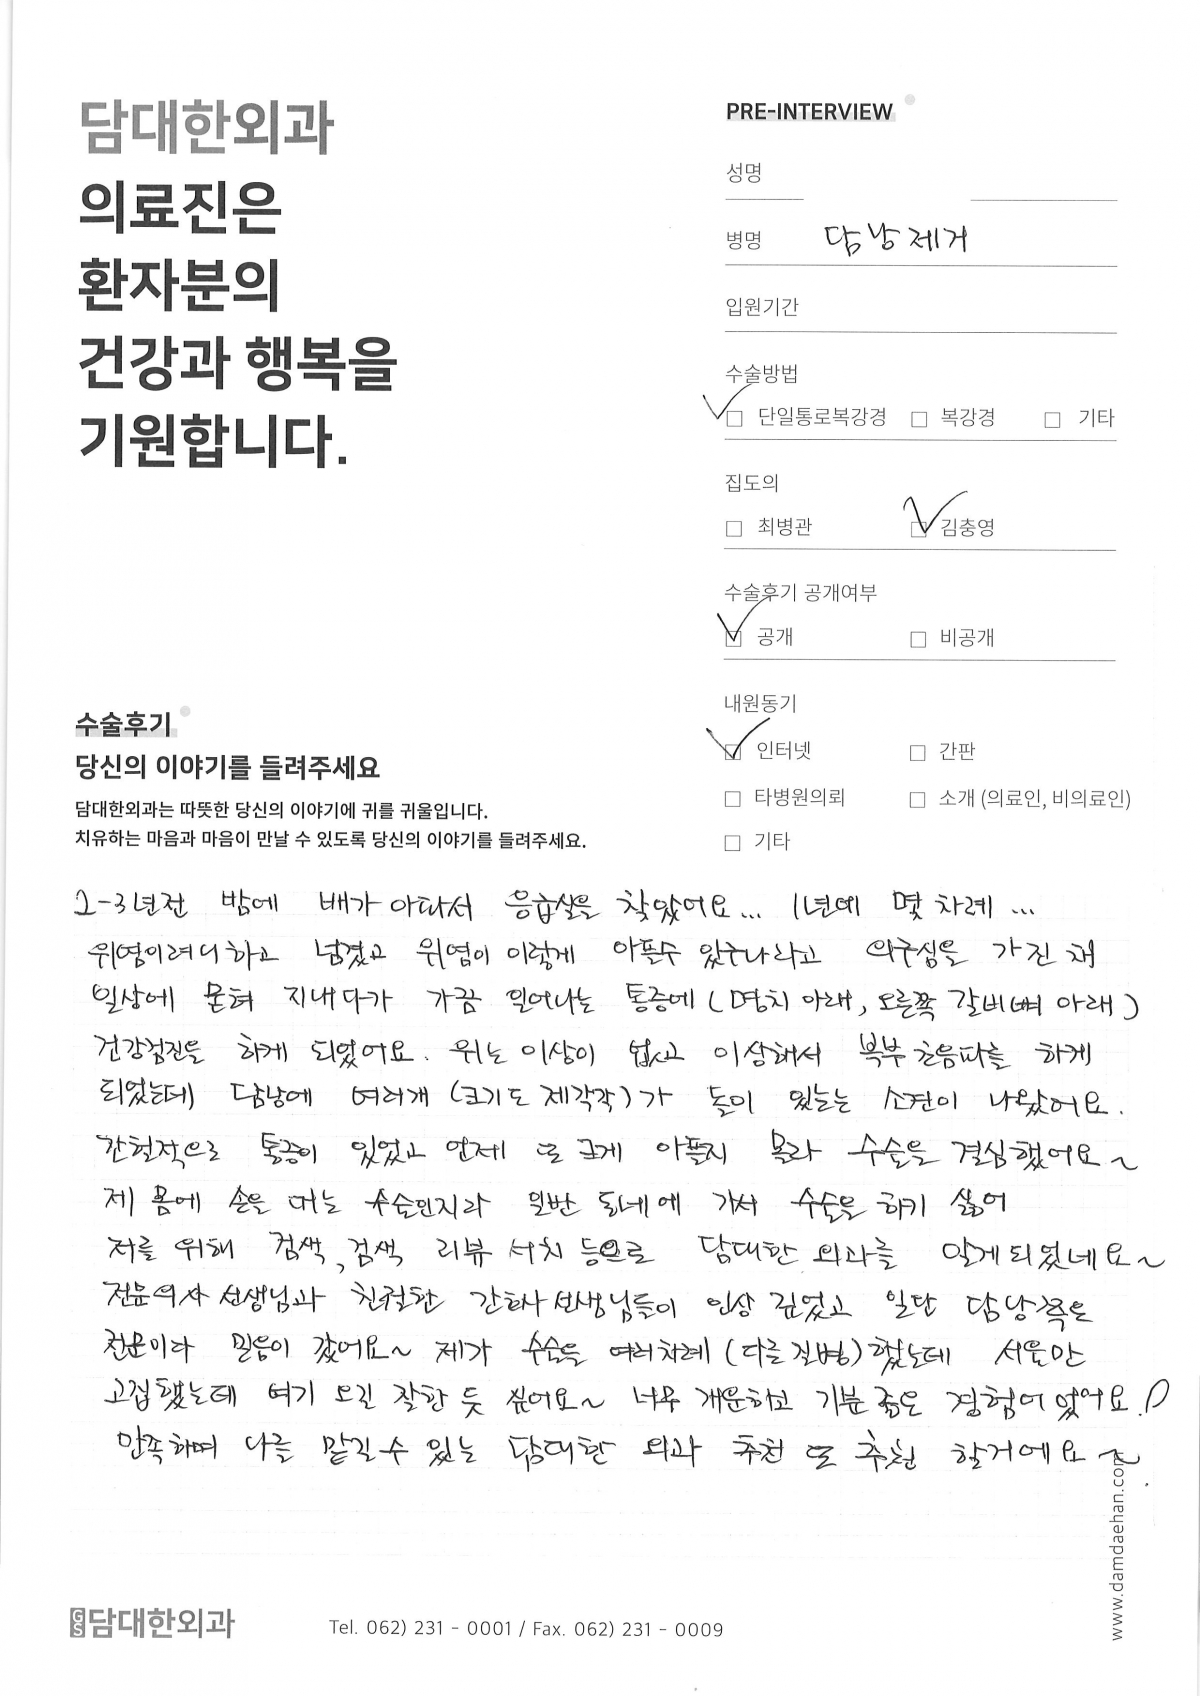 담대한외과
의료진은
환자분의
건강과 행복을
기원합니다.
PRE-INTERVIEW
성명
병명 담낭제거
입원기간
수술방법
☑ 단일통로복강경 □ 복강경 □ 기타
집도의
□ 최병관 ☑ 김충영
수술후기 공개여부
☑ 공개 □ 비공개
내원동기
☑ 인터넷 □ 간판
□ 타병원의뢰 □ 소개 (의료인, 비의료인)
□ 기타
수술후기
당신의 이야기를 들려주세요
담대한외과는 따뜻한 당신의 이야기에 귀를 귀울입니다.
치유하는 마음과 마음이 만날 수 있도록 당신의 이야기를 들려주세요.
2-3년전 밤에 배가 아파서 응급실을 찾았어요... 1년에 몇 차례 ...
위염이려니하고 넘겼고 위염이 이렇게 아플수 있구나라고 의구심을 가진 채
일상에 묻혀 지내다가 가끔 일어나는 통증에 (명치 아래, 오른쪽 갈비뼈 아래)
건강검진을 하게 되었어요. 위는 이상이 없고 이상해서 복부 초음파를 하게
되었는데 담낭에 여러개 (크기도 제각각)가 돌이 있는 소견이 나왔어요.
간헐적으로 통증이 있었고 언제 또 크게 아플지 몰라 수술을 결심했어요~
제 몸에 손을 대는 수술인지라 일반 동네에 가서 수술을 하기 싫어
저를 위해 검색, 검색 리뷰 서치 등으로 담대한 외과를 알게되었네요~
전문의사 선생님과 친절한 간호사 선생님들이 인상 깊었고 일단 담낭쪽은
전문이라 믿음이 갔어요~ 제가 수술을 여러차례 (다른질병)했는데 서울만
고집했는데 여기 오길 잘한 듯 싶어요~ 너무 개운하고 기분 좋은 경험이었어요.!
만족하며 나를 맡길수 있는 담대한 외과 추천 또 추천 할거에요~.
www.damdaehan.com
GS 담대한외과
Tel. 062) 231 - 0001 / Fax. 062) 231 - 0009